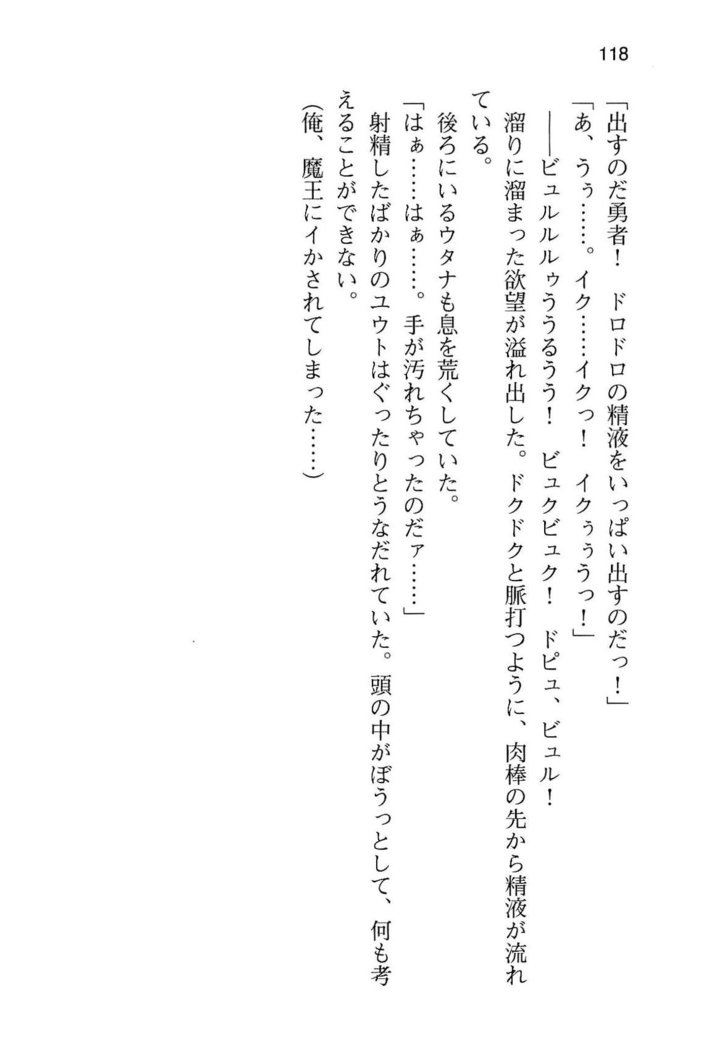 118
「出すのだ勇者！　ドロドロの精液をいっぱい出すのだっ！」
「あ、うぅ……。イク……イクっ！　イクぅぅうっ！」
――ビュルルルゥううるうう！　ビュクビュク！　ドピュ、ビュル！
溜りに溜まった欲望が溢れ出した。ドクドクと脈打つように、肉棒の先から精液が流れ
ている。
後ろにいるウタナも息を荒くしていた。
「はぁ……はぁ……。手が汚れちゃったのだァ……」
射精したばかりのユウトはぐったりとうなだれていた。頭の中がぼうっとして、何も考
えることができない。
（俺、魔王にイかされてしまった……）